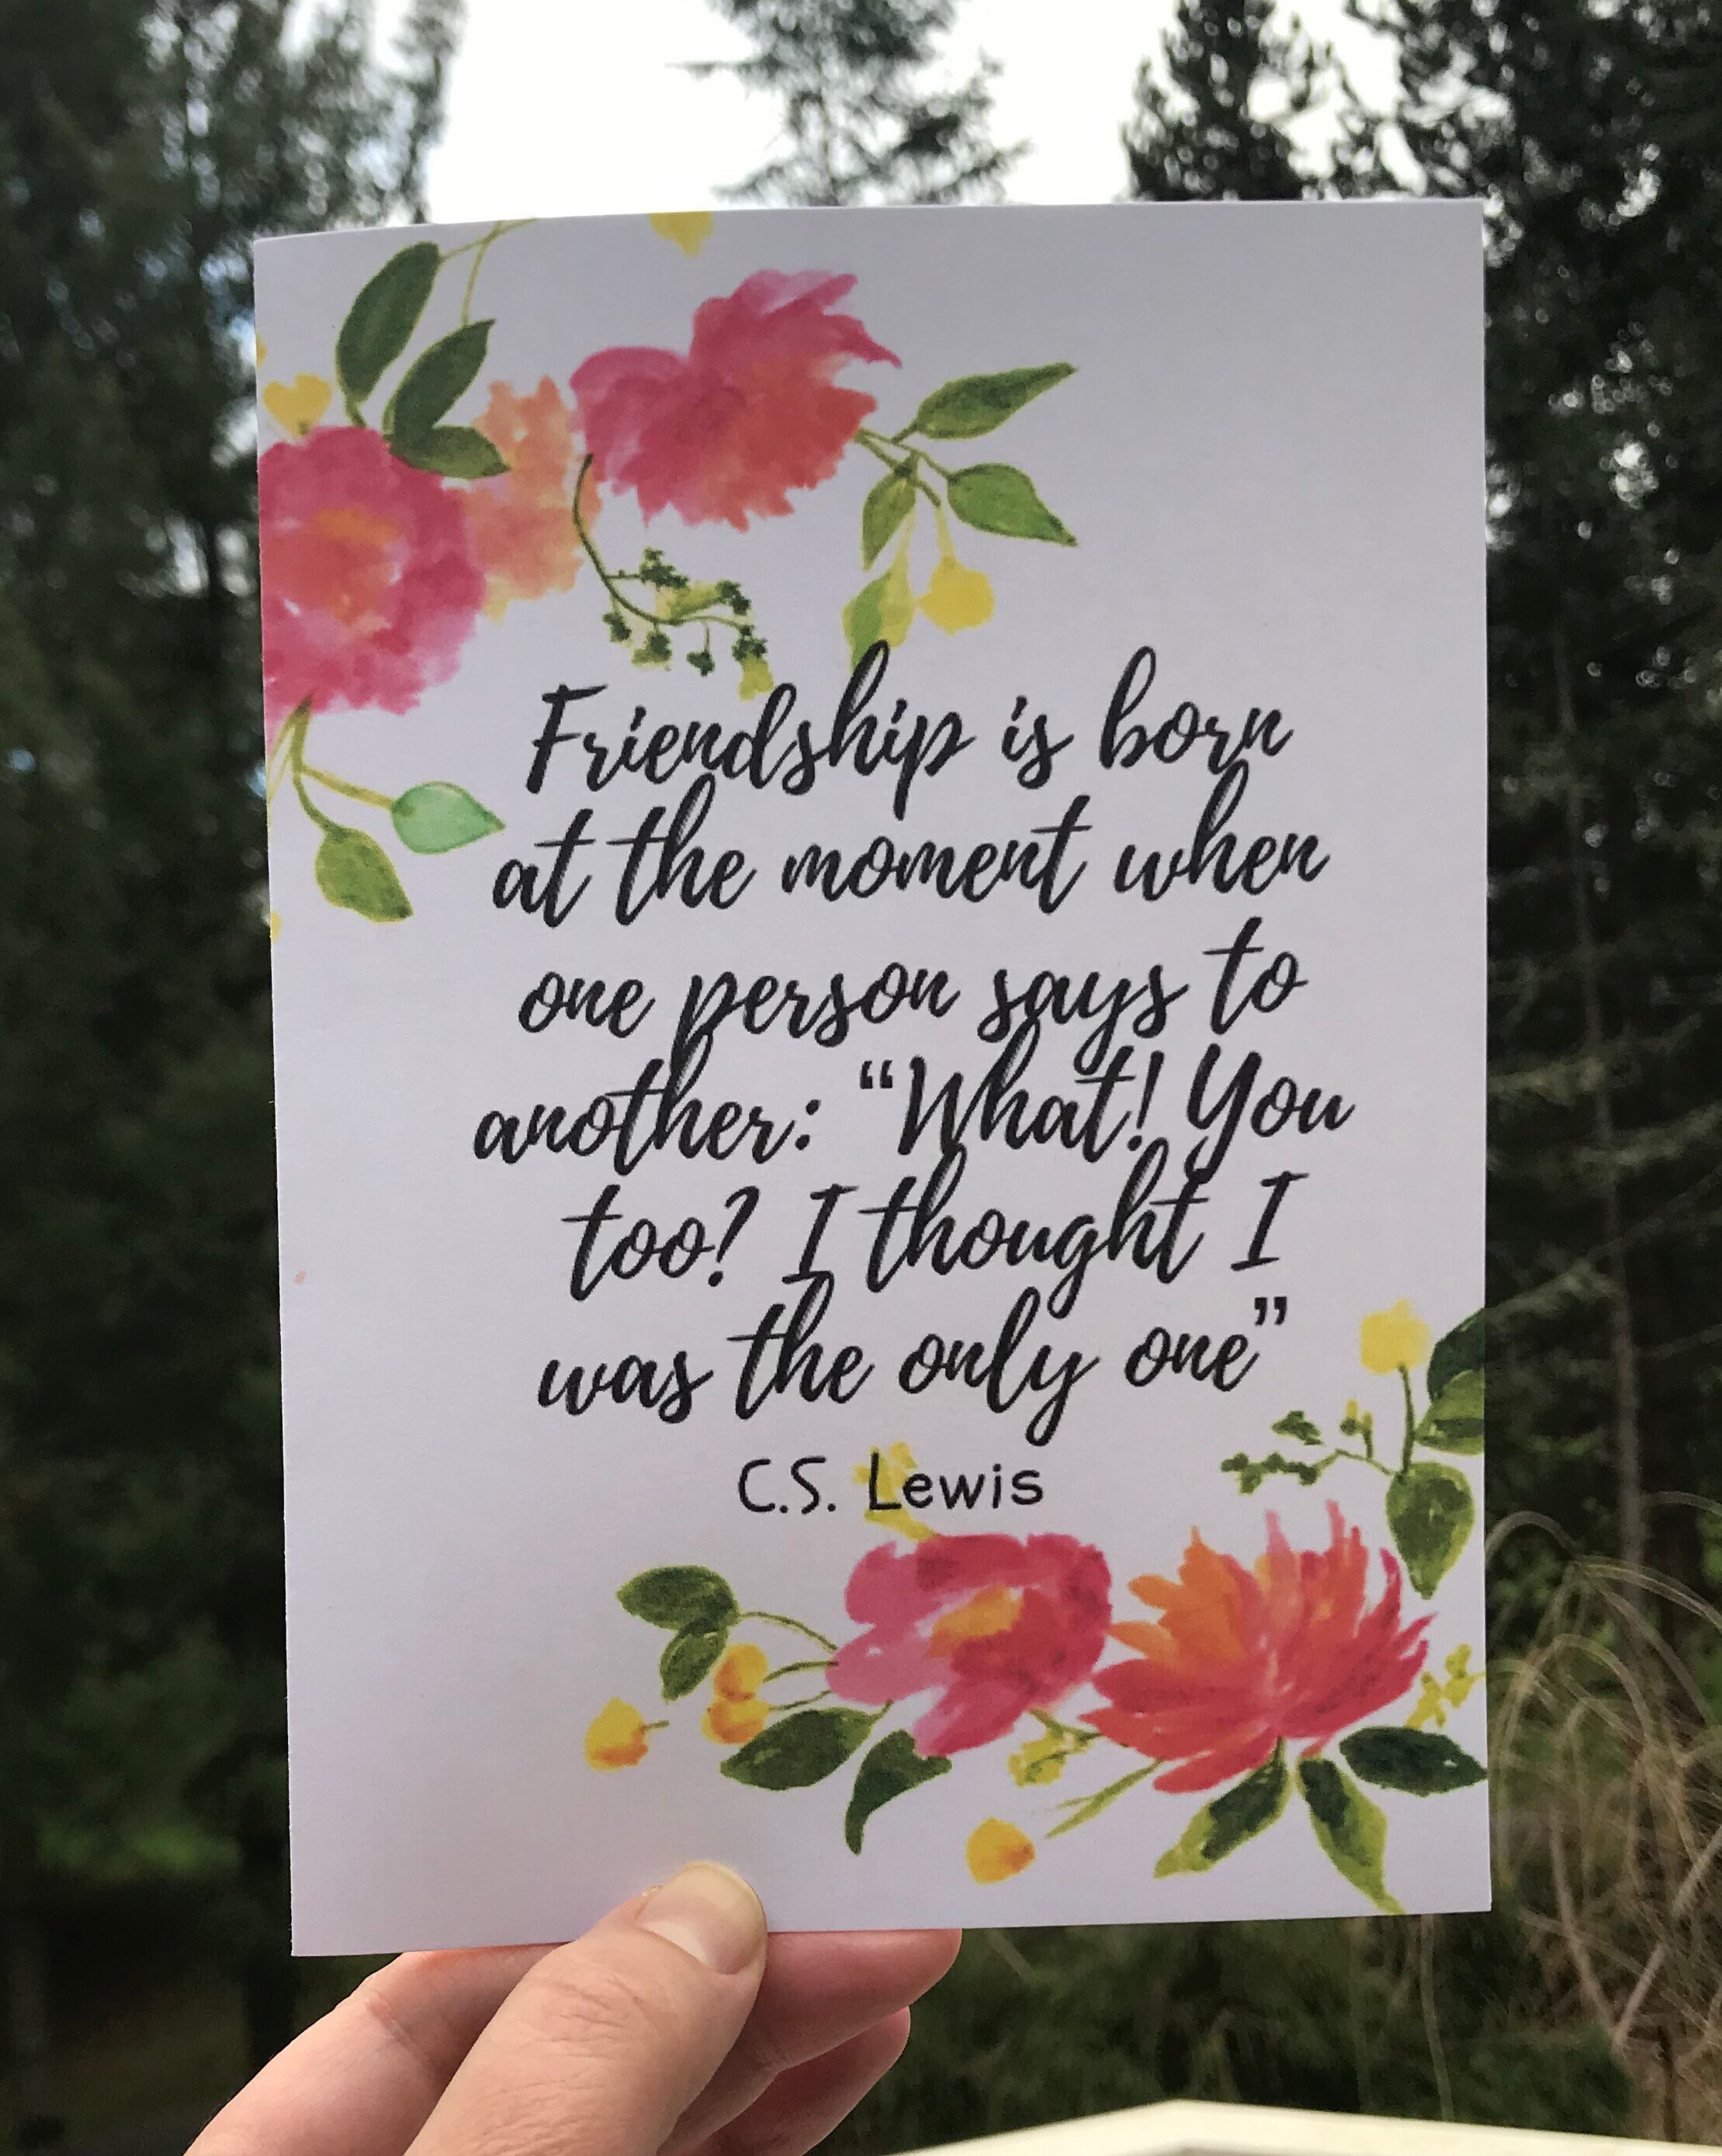 Friendship is born
at the moment when
one person says to
another: “What! You
too? I thought I
was the only one”
C.S. Lewis